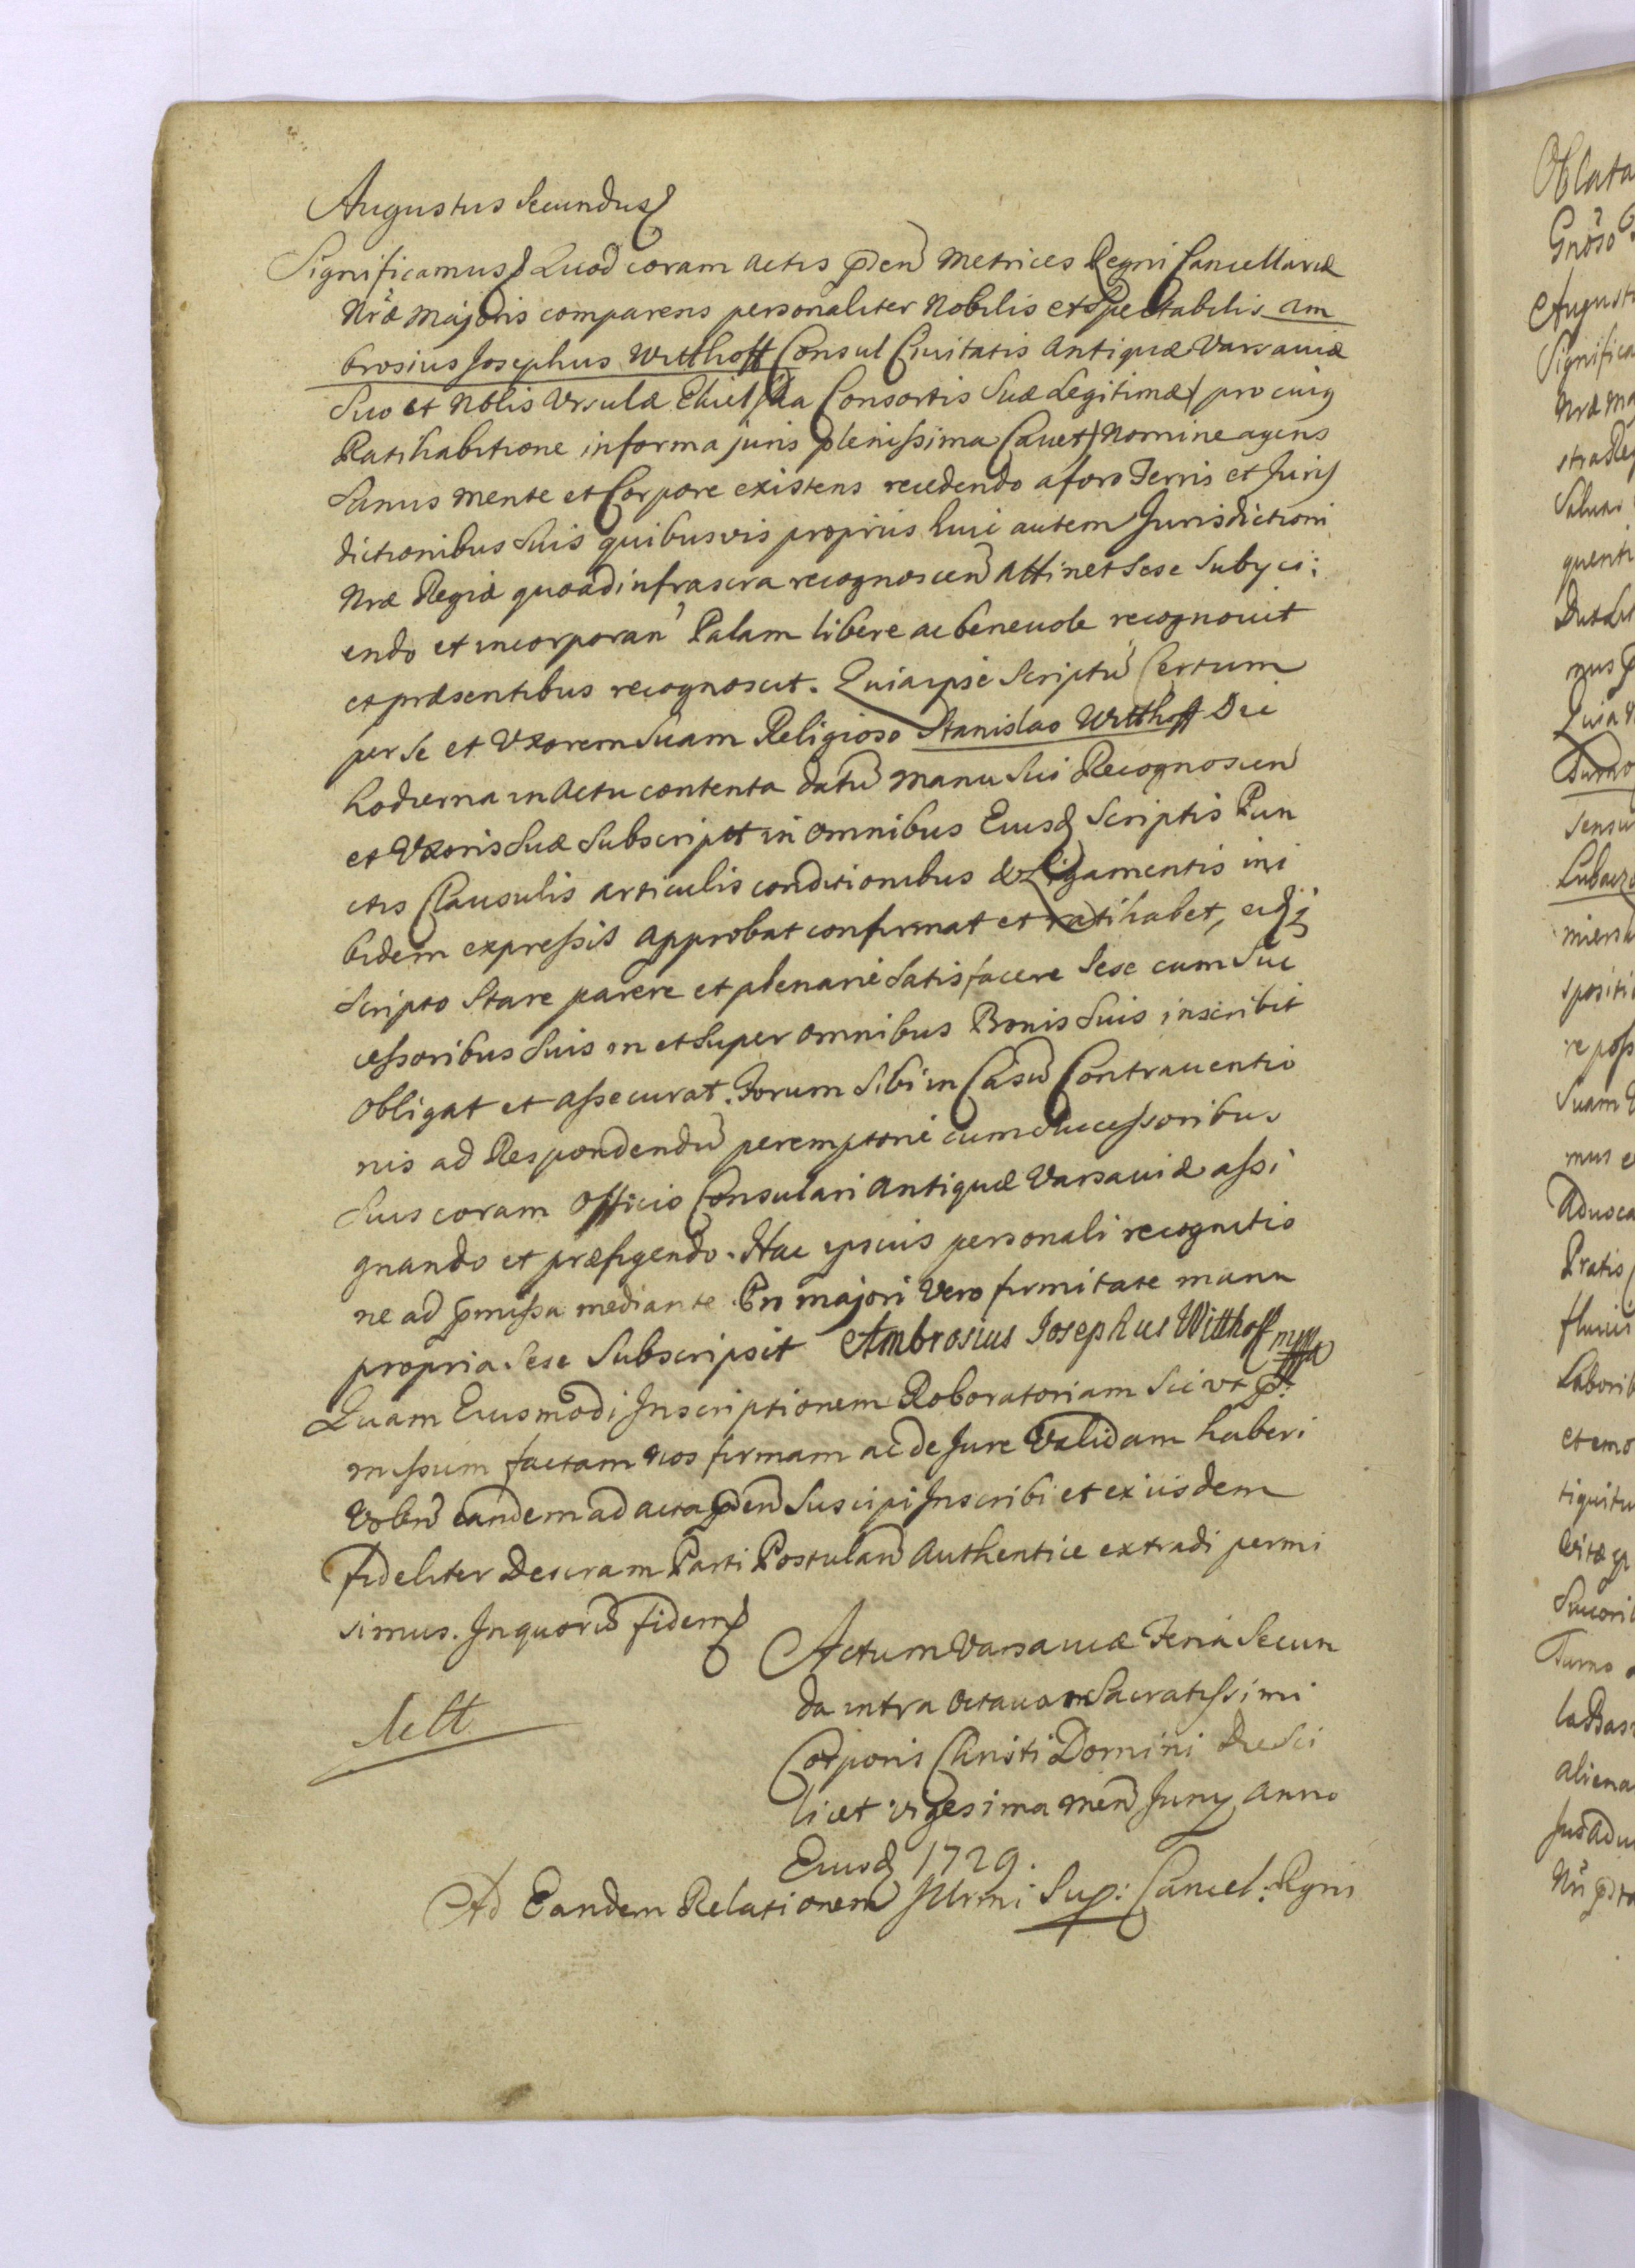 Augustus Secundus
Significamus Quod coram Actis p̄sen̄ Metrices Regni Cancellariæ
Nr̃æ Majoris comparens personaliter Nobilis et Spectabilis Am
brosius Josephus Witthoff Consul Civitatis Antiquæ Varsaviæ
Suo et Nobilis Ursulæ Consortis Suæ Legitimæ pro cuiꝯ
Ratihabitione in forma juris plenissima Cavet Nomine agens
Sanus mente et Corpore existens recedendo a foro Terris et Juris
dictionibus Suis quibusvis propriis huic autem Jurisdictioni
Nræ Regiæ quoad infrascra recognoscen̄ Attinet Sese Subijci:
endo et incorporan̄ Palam libere ac benevole recognovit
et præsentibus recognoscit. Quia ipse Scriptū Certum
per Se et Uxorem Suam Religioso Stanislao Witthoff Die
hodierna in Actu contenta datū Manu Sui Recognoscen̄
et Uxoris Suæ Subscriptt in omnibus Eiusd Scriptis Pun
ctis Clausulis articulis conditionibus & Ligamentis ini
bidem expressis approbat confirmat et ratihabet, eidq
Scripto Stare parere et plenarie Satisfacere Sese cum Suc
cessoribus Suis in et Super omnibus Bonis Suis inscribit
obligat et assecurat. Forum Sibi in Casū Contraventio
nis ad Respondendū peremptorie cum Successoribus
Suis coram Officio Consulari Antiquæ Varsaviæ assi
gnando et præfigendo. Hac ipsius personali recognitio
ne ad p̄missa mediante. Pro majori Vero firmitate manu
propria Sese Subscripsit Ambrosius Josephus Witthoff mppa
Quam Eiusmodi Inscriptionem Roboratoriam Sic ut p̄:
missum factam nos firmam ac de Jure Validam haberi
Volen̄ eandem ad acta p̄sen̄ Suscipi Inscribi et ex iisdem
fideliter Descram Parti Postulan̄ Authentice extradi permi
simus. In quorū fidem
Actum Varsaviæ Feria Secun
da intra Octavam Sacratissimi
Corporis Christi Domini Die Sci
licet vigesima Men̄ Junij Anno
Eiusd 1729.
Ad Eandem Relationem Illrmi Sup: Cancel: Rgni
Oblata
Gnōso
August
Significa
Nræ Ma